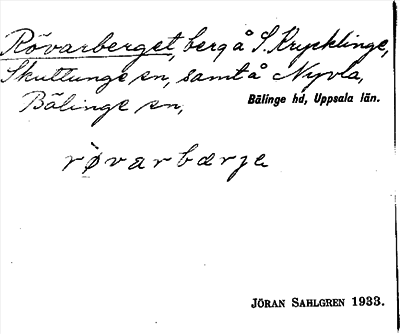 Rövarberget, berg å S. Krycklinge,
Skuttunge sn, samt å Nyvla,
Bälinge sn,
Bälinge hd, Uppsala län.
røvarbærje
JÖRAN SAHLGREN 1933.